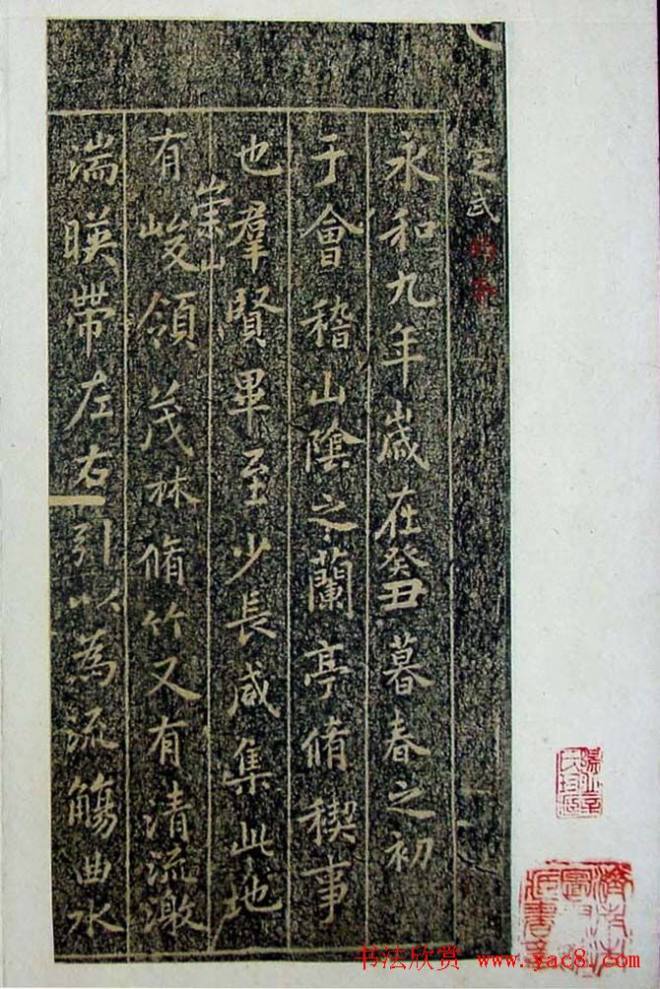 定武
永和九年歲在癸丑暮春之初
于會稽山陰之蘭亭脩稧事
也羣賢畢至少長咸集此地
有崇山峻領茂林脩竹又有清流激
湍暎帶左右引以為流觴曲水
书法欣赏 www.yac8.com